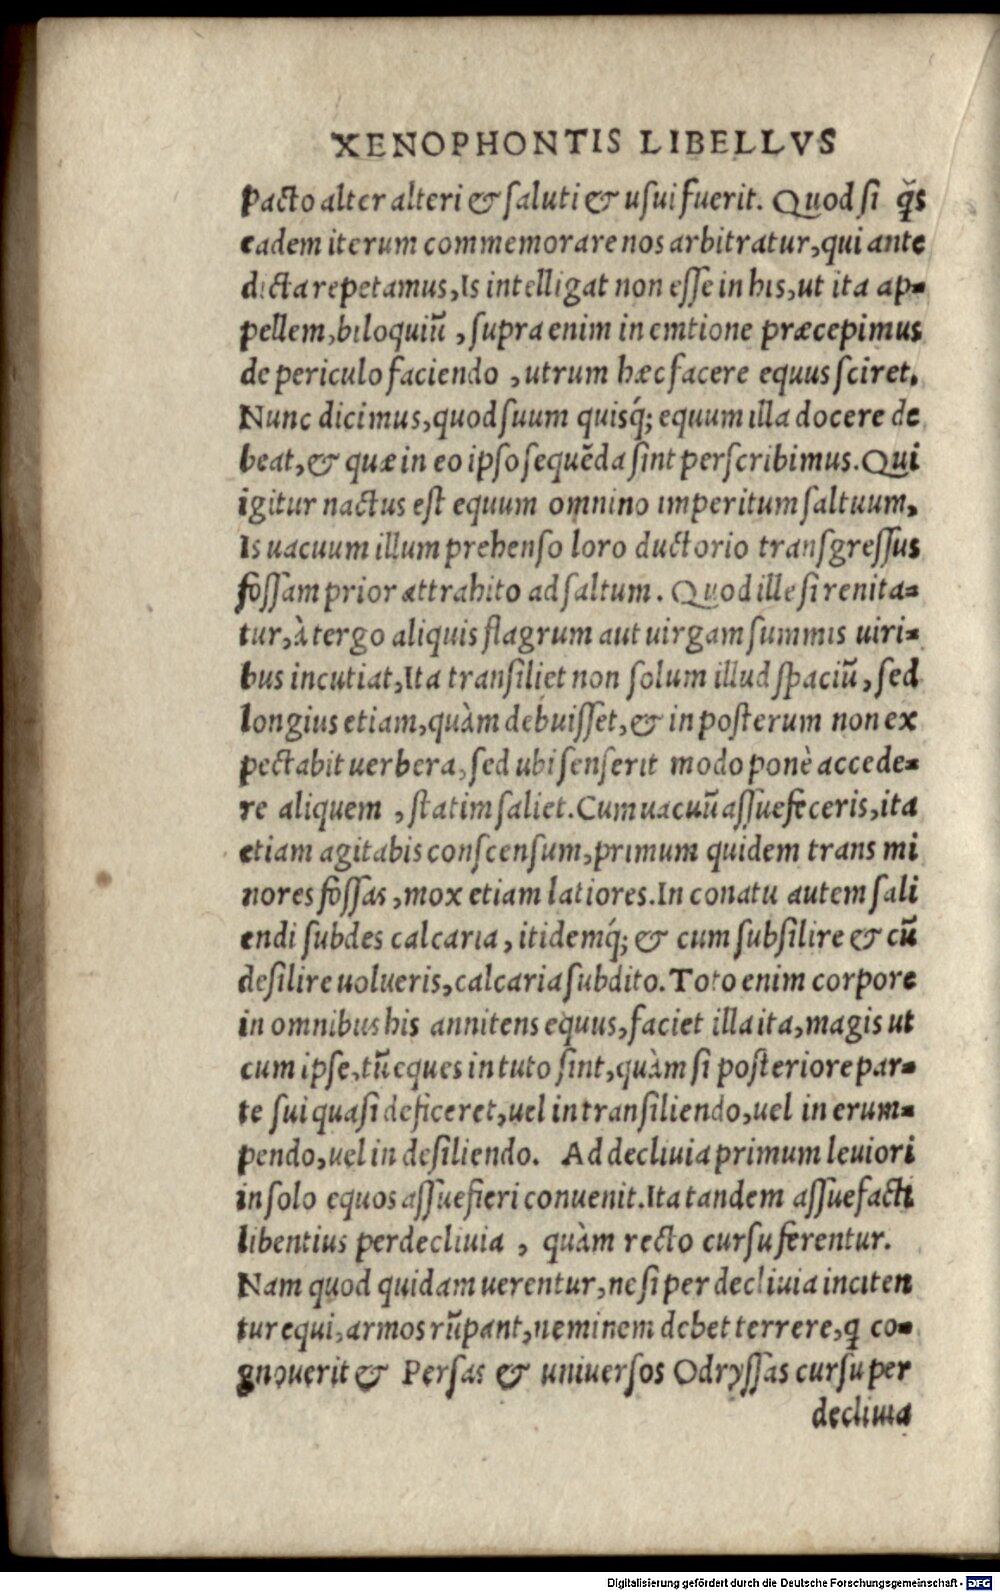 XENOPHONTIS LIBELLVS
pacto alter alteri & saluti & usui fuerit. Quod si q̃s
eadem iterum commemorare nos arbitratur, qui ante
dicta repetamus, Is intelligat non esse in his, ut ita ap-
pellem, biloquiũ, supra enim in emtione præcepimus
de periculo faciendo, utrum hæc facere equus sciret.
Nunc dicimus, quod suum quisq́; equum illa docere de
beat, & quæ in eo ipso sequẽda sint perscribimus. Qui
igitur nactus est equum omnino imperitum saltuum,
Is uacuum illum prehenso loro ductorio transgressus
fossam prior attrahito ad saltum. Quod ille si renita-
tur, à tergo aliquis flagrum aut uirgam summis uiri-
bus incutiat, Ita transiliet non solum illud spaciũ, sed
longius etiam, quàm debuisset, & in posterum non ex
pectabit uerbera, sed ubi senserit modo ponè accede-
re aliquem, statim saliet. Cum uacuũ assuefeceris, ita
etiam agitabis conscensum, primum quidem trans mi
nores fossas, mox etiam latiores. In conatu autem sali
endi subdes calcaria, itidemq́; & cum subsilire & cũ
desilire uolueris, calcaria subdito. Toto enim corpore
in omnibus his annitens equus, faciet illa ita, magis ut
cum ipse, tũ eques in tuto sint, quàm si posteriore par-
te sui quasi deficeret, uel in transiliendo, uel in erum-
pendo, uel in desiliendo. Ad decliuia primum leuiori
in solo equos assuefieri conuenit. Ita tandem assuefacti
libentius per decliuia, quàm recto cursu ferentur.
Nam quod quidam uerentur, ne si per decliuia inciten
tur equi, armos rũpant, neminem debet terrere, q̃ co-
gnouerit & Persas & uniuersos Odryssas cursu per
decliuia
Digitalisierung gefördert durch die Deutsche Forschungsgemeinschaft - DFG